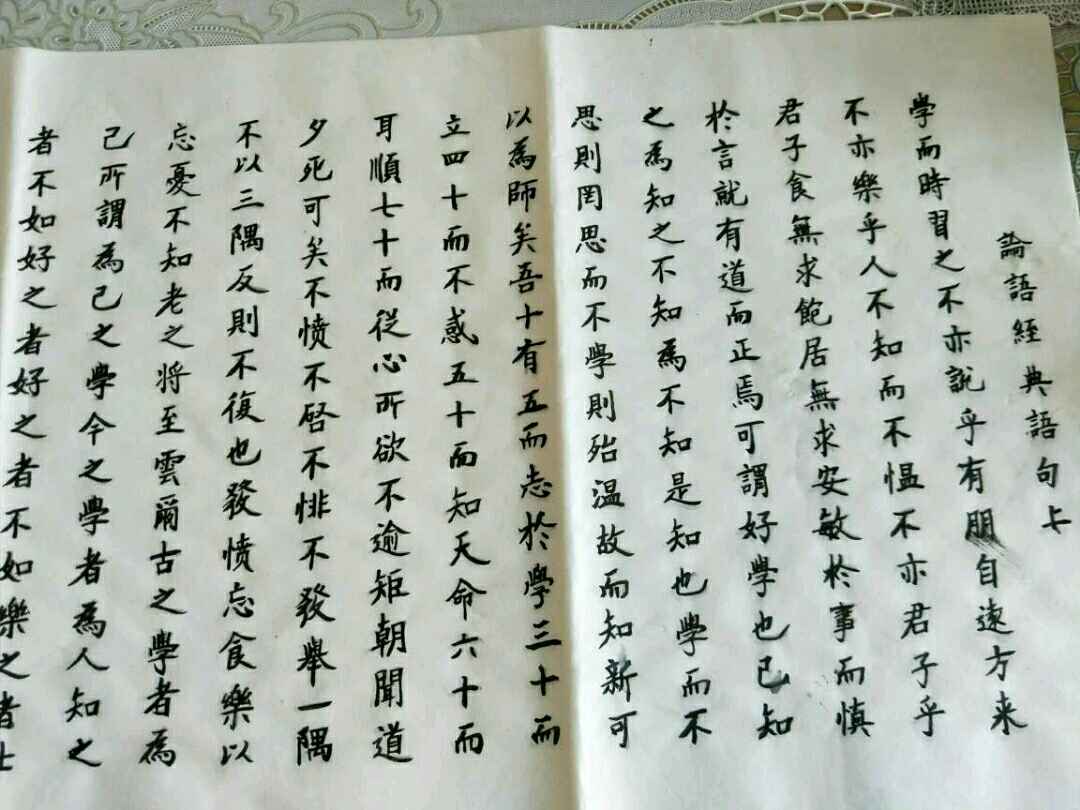 論語經典語句上
學而時習之不亦說乎有朋自遠方来
不亦樂乎人不知而不愠不亦君子乎
君子食無求飽居無求安敏於事而慎
於言就有道而正焉可謂好學也已知
之為知之不知為不知是知也學而不
思則罔思而不學則殆温故而知新可
以為師矣吾十有五而志於學三十而
立四十而不惑五十而知天命六十而
耳順七十而従心所欲不逾矩朝聞道
夕死可矣不愤不啓不悱不發舉一隅
不以三隅反則不復也發愤忘食樂以
忘憂不知老之将至雲爾古之學者為
己所謂為己之學今之學者為人知之
者不如好之者好之者不如樂之者士